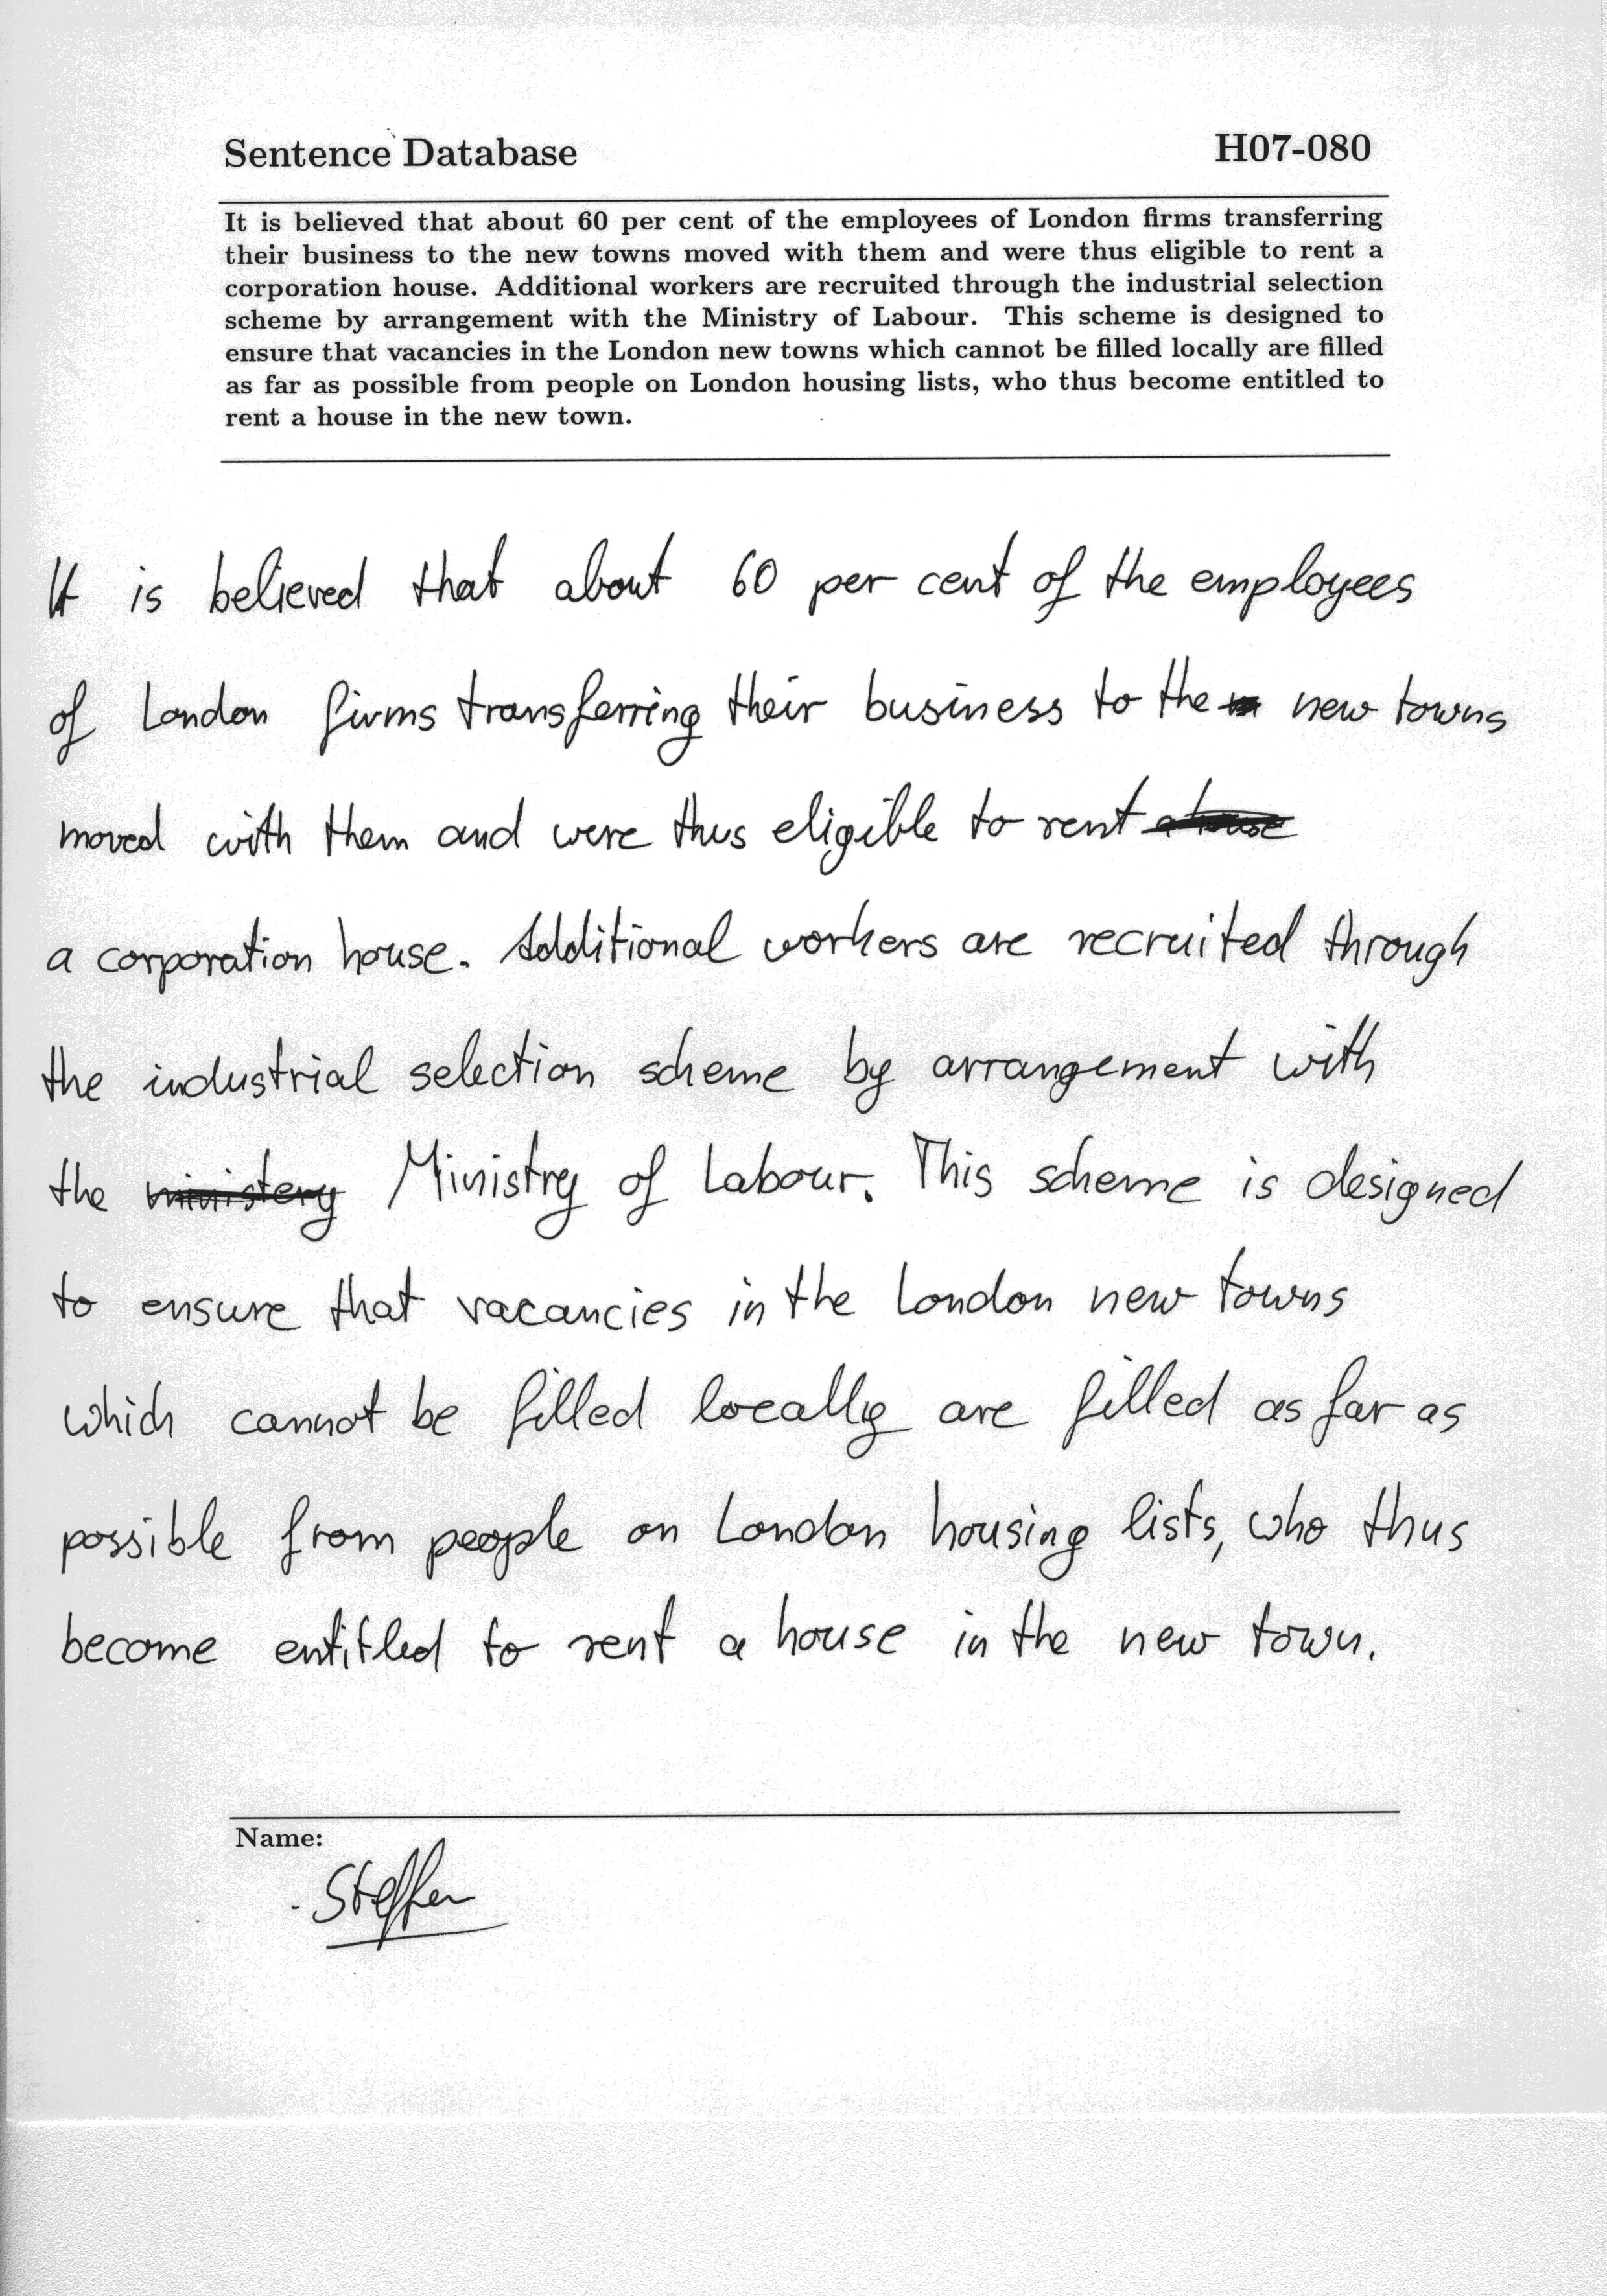 Sentence Database
H07-080
It is believed that about 60 per cent of the employees of London firms transferring
their business to the new towns moved with them and were thus eligible to rent a
corporation house. Additional workers are recruited through the industrial selection
scheme by arrangement with the Ministry of Labour. This scheme is designed to
ensure that vacancies in the London new towns which cannot be filled locally are filled
as far as possible from people on London housing lists, who thus become entitled to
rent a house in the new town.
It is believed that about 60 per cent of the employees
of London firms transferring their business to the new towns
moved with them and were thus eligible to rent
a corporation house. Additional workers are recruited through
the industrial selection scheme by arrangement with
the ministery Ministry of Labour. This scheme is designed
to ensure that vacancies in the London new towns
which cannot be filled locally are filled as far as
possible from people on London housing lists, who thus
become entitled to rent a house in the new town.
Name:
Steffen